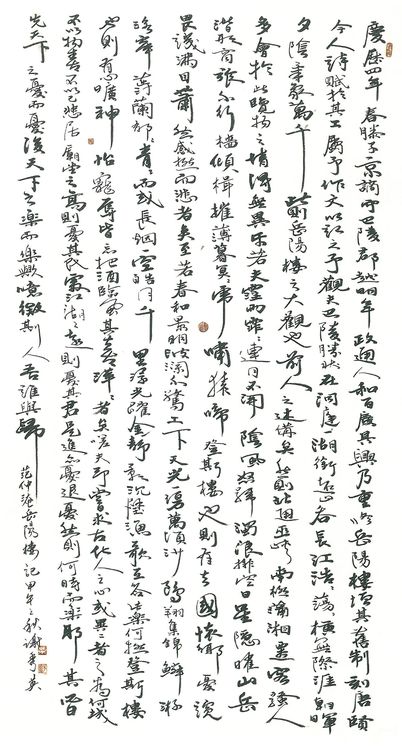 慶曆四年春滕子京謫守巴陵郡越明年政通人和百廢具興乃重修岳陽樓增其舊制刻唐賢
今人詩賦於其上屬予作文以記之予觀夫巴陵勝狀在洞庭一湖銜遠山吞長江浩浩蕩蕩橫無際涯朝暉
夕陰氣象萬千此則岳陽樓之大觀也前人之述備矣然則北通巫峽南極瀟湘遷客騷人
多會於此覽物之情得無異乎若夫霪雨霏霏連月不開陰風怒號濁浪排空日星隱曜山岳
潛形商旅不行檣傾楫摧薄暮冥冥虎嘯猿啼登斯樓也則有去國懷鄉憂讒
畏譏滿目蕭然感極而悲者矣至若春和景明波瀾不驚上下天光一碧萬頃沙鷗翔集錦鱗游
泳岸芷汀蘭郁郁青青而或長煙一空皓月千里浮光躍金靜影沉璧漁歌互答此樂何極登斯樓
也則有心曠神怡寵辱皆忘把酒臨風其喜洋洋者矣嗟夫予嘗求古仁人之心或異二者之為何哉
不以物喜不以己悲居廟堂之高則憂其民處江湖之遠則憂其君是進亦憂退亦憂然則何時而樂耶其必曰
先天下之憂而憂後天下之樂而樂歟噫微斯人吾誰與歸
范仲淹岳陽樓記甲午之秋謝秀英